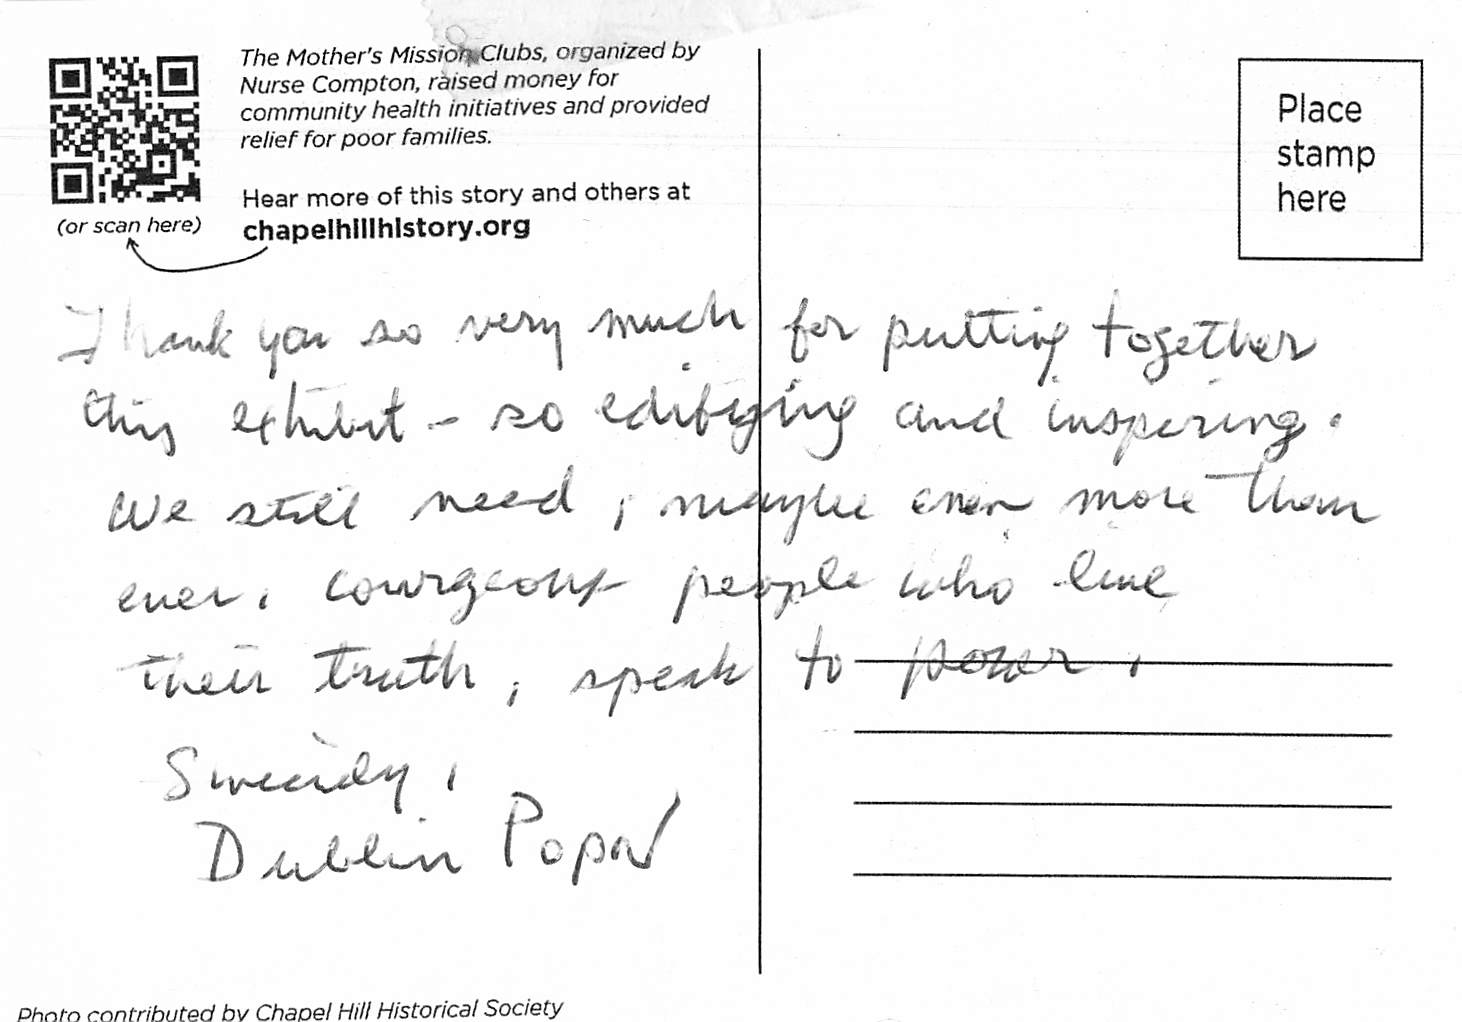 The Mother's Mission Clubs, organized by
Nurse Compton, raised money for
community health initiatives and provided
relief for poor families.
Hear more of this story and others at
chapelhillhistory.org
(or scan here)
Place
stamp
here
Thank you so very much for putting together
this exhibit - so edifying and inspiring.
We still need, maybe even more than
ever, courgeous people who live
their truth, speak to power.
Sincerely,
Dublin
Photo contributed by Chapel Hill Historical Society